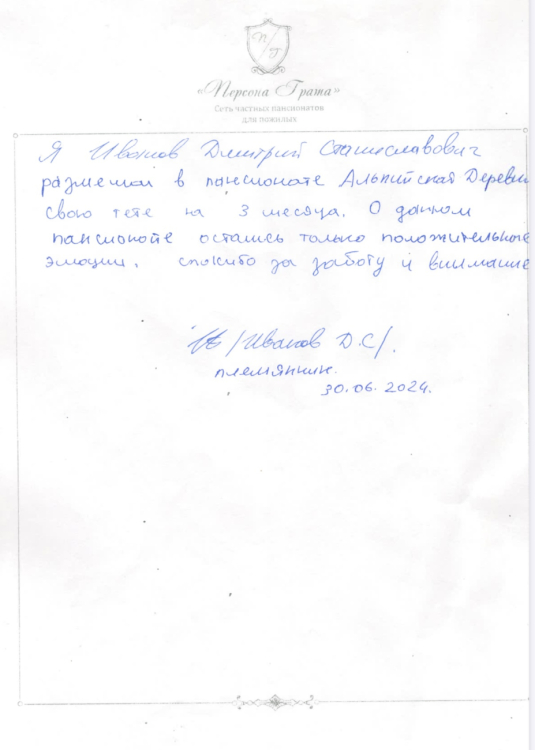 П/Г
«Персона Грата»
Сеть частных пансионатов
для пожилых
Я Иванов Дмитрий Станиславович
размещал в пансионате Альпийская Деревня
свою тётю на 3 месяца. О данном
пансионате остались только положительные
эмоции. спасибо за заботу и внимание
/Иванов Д.С/.
племянник.
30.06.2024.